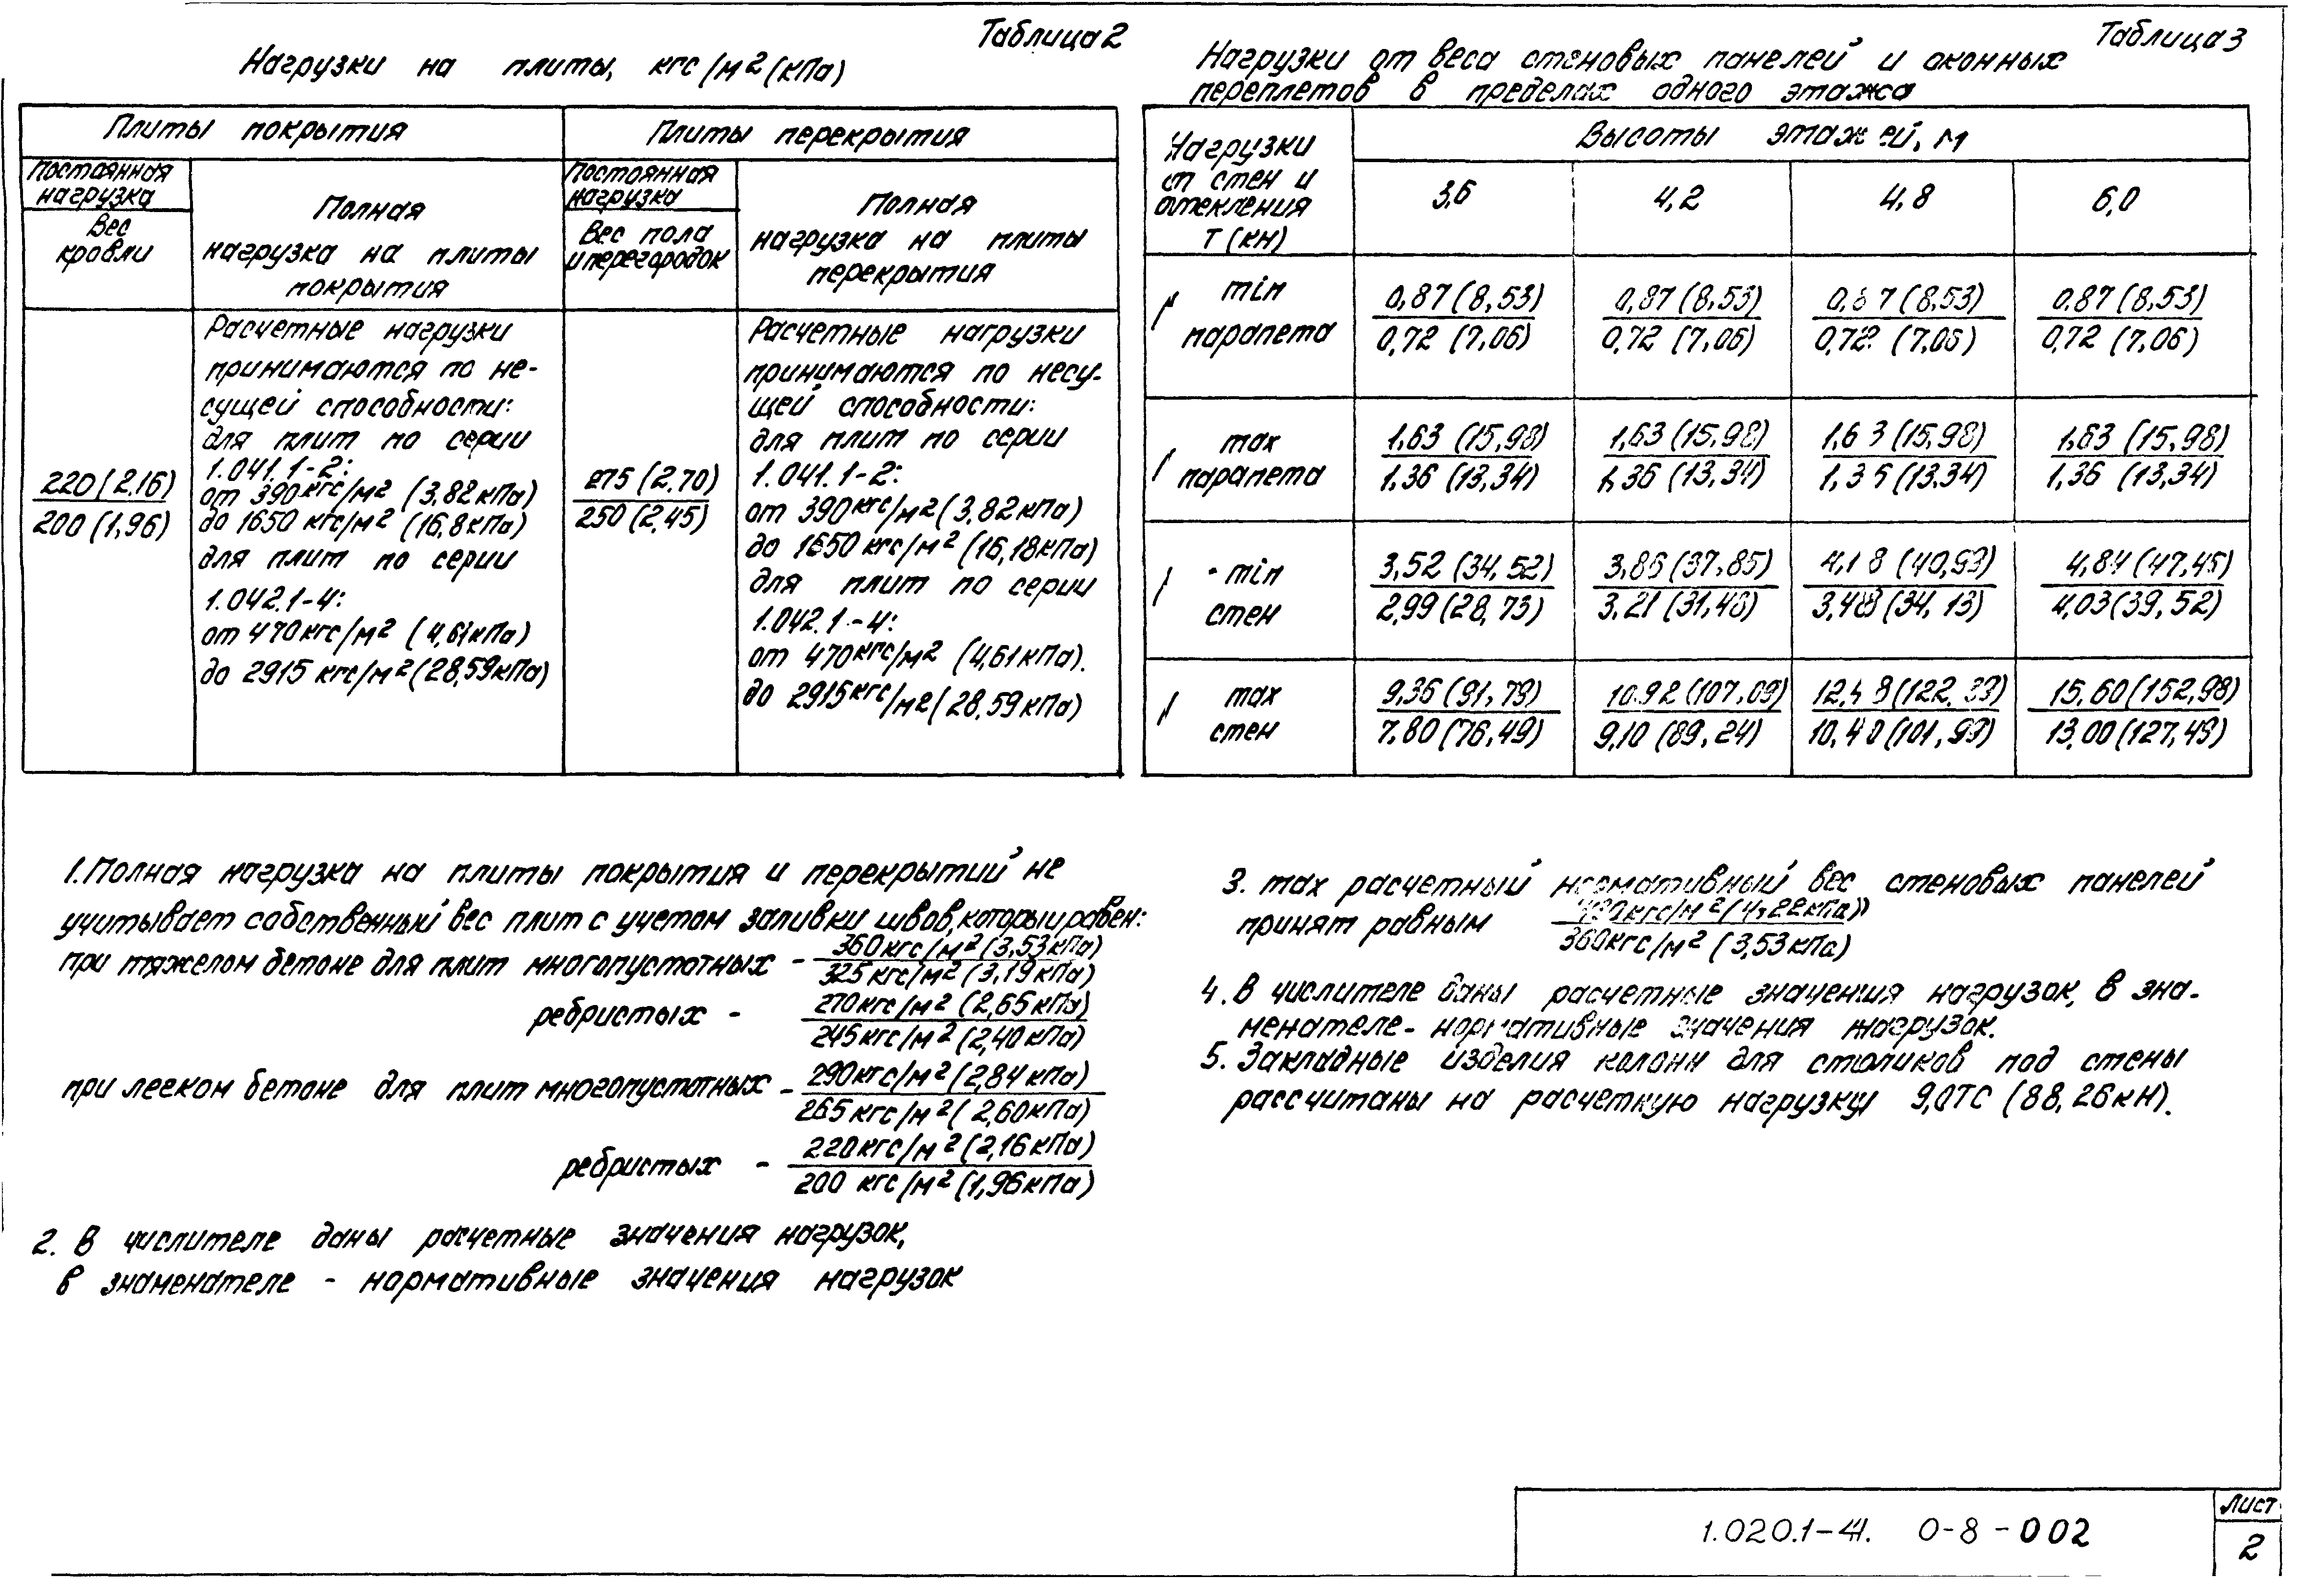 Таблица 2
Нагрузки на плиты, кгс/м² (кПа)
Плиты покрытия
Плиты перекрытия
Постоянная
нагрузка
Вес
кровли
Полная
нагрузка на плиты
покрытия
Постоянная
нагрузка
Вес пола
и перегородок
Полная
нагрузка на плиты
перекрытия
220 (2,16)
200 (1,96)
Расчетные нагрузки
принимаются по не-
сущей способности:
для плит по серии
1.041.1-2:
от 390 кгс/м² (3,82 кПа)
до 1650 кгс/м² (16,8 кПа)
для плит по серии
1.042.1-4:
от 470 кгс/м² (4,61 кПа)
до 2915 кгс/м² (28,59 кПа)
275 (2,70)
250 (2,45)
Расчетные нагрузки
принимаются по несу-
щей способности:
для плит по серии
1.041.1-2:
от 390 кгс/м² (3,82 кПа)
до 1650 кгс/м² (16,18 кПа)
для плит по серии
1.042.1-4:
от 470 кгс/м² (4,61 кПа).
до 2915 кгс/м² (28,59 кПа)
1. Полная нагрузка на плиты покрытия и перекрытий не
учитывает собственный вес плит с учетом заливки швов, который равен:
при тяжелом бетоне для плит многопустотных -
360 кгс/м² (3,53 кПа)
325 кгс/м² (3,19 кПа)
ребристых -
270 кгс/м² (2,65 кПа)
245 кгс/м² (2,40 кПа)
при легком бетоне для плит многопустотных -
290 кгс/м² (2,84 кПа)
265 кгс/м² (2,60 кПа)
ребристых -
220 кгс/м² (2,16 кПа)
200 кгс/м² (1,96 кПа)
2. В числителе даны расчетные значения нагрузок,
в знаменателе - нормативные значения нагрузок
Таблица 3
Нагрузки от веса стеновых панелей и оконных
переплетов в пределах одного этажа
Нагрузки
от стен и
остекления
Т (кН)
Высоты этажей, м
3,6 4,2 4,8 6,0
min
парапета
0,87 (8,53) 0,87 (8,53) 0,87 (8,53) 0,87 (8,53)
0,72 (7,06) 0,72 (7,06) 0,72 (7,06) 0,72 (7,06)
max
парапета
1,63 (15,98) 1,63 (15,98) 1,63 (15,98) 1,63 (15,98)
1,36 (13,34) 1,36 (13,34) 1,36 (13,34) 1,36 (13,34)
min
стен
3,52 (34,52) 3,86 (37,85) 4,18 (40,99) 4,84 (47,46)
2,99 (28,73) 3,21 (31,48) 3,48 (34,13) 4,03 (39,52)
max
стен
9,36 (91,79) 10,92 (107,09) 12,48 (122,39) 15,60 (152,98)
7,80 (76,49) 9,10 (89,24) 10,40 (101,99) 13,00 (127,49)
3. max расчетный нормативный вес стеновых панелей
принят равным
кгс/м² (4,22 кПа)
360 кгс/м² (3,53 кПа)
4. В числителе даны расчетные значения нагрузок, в зна-
менателе - нормативные значения нагрузок.
5. Закладные изделия колонн для столиков под стены
рассчитаны на расчетную нагрузку 9,0ТС (88,26 кН).
1.020.1-4. 0-8-002
Лист
2